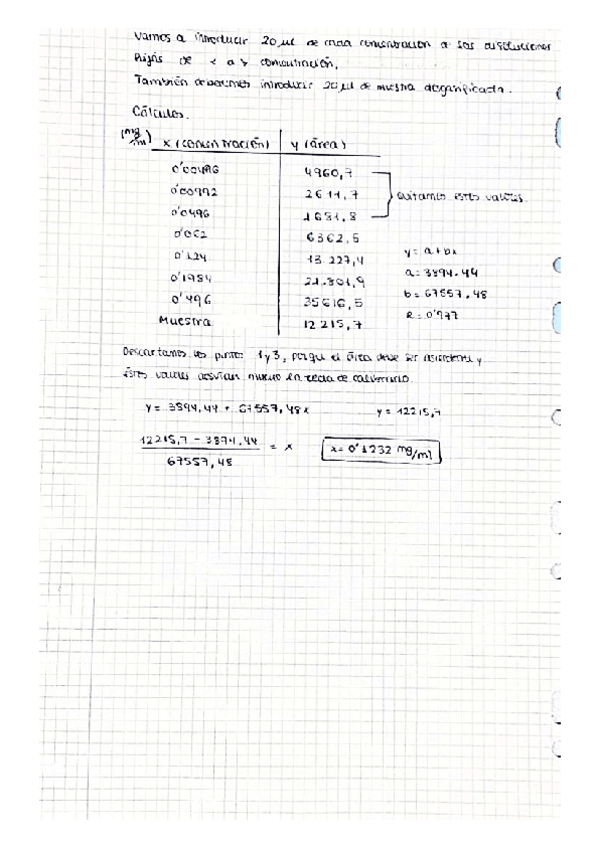 Vamos a introducir 20 µl de cada concentración a las disoluciones
hijas de < a > concentración.
También debemos introducir 20 µl de muestra desgasificada.
Cálculos.
(mg/ml) x (concentración) y (área)
0'00496 4960,7
0'00992 2611,7 quitamos estos valores.
0'0496 1681,8
0'062 6362,5
0'124 13.227,4 y = a + bx
0'1984 21.801,9 a = 3894.44
0'496 35616,5 b = 67557.48
Muestra 12215,7 R = 0'977
Descartamos los puntos 1 y 3, porque el área debe ser ascendente y
estos valores desvían mucho la recta de calibrado.
y = 3894,44 + 67557,48x y = 12215,7
12215,7 - 3894,44 = x x = 0'1232 mg/ml
67557,48